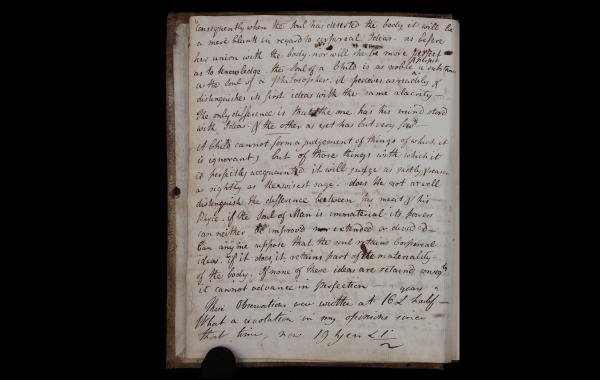 consequently when the Soul has deserted the body, it will be
a mere blank in regard to corporeal Ideas. as before
her union with the body. nor will she be more perfect
as to Knowledge the Soul of a Child is as noble a substance
as the Soul of a Philosopher. it perceives as readily &
distinguishes its first ideas with the same alacrity —
The only difference is that the one has his mind stored
with Ideas. & the other as yet has but very few.
A Child cannot form a judgement of things of which it
is ignorant, but of those things with which it
is perfectly acquainted it will judge as justly & reason
as rightly as the wisest sage. does he not as well
distinguish the difference between his meat & his
Physic. if the Soul of Man is immaterial its powers
can neither be improved nor extended or divided —
Can any one suppose that the soul retains Corporeal
ideas. If it does, it retains part of the materiality
of the body. If none of these ideas are retained
it cannot advance in perfection
These Observations were written at 16 & half —
What a revolution in my opinions since
that time, now 19